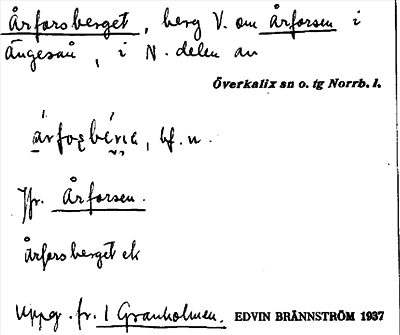 Årforsberget, berg V. om Årforsen i
Ängesån, i N. delen av
Överkalix sn o. tg Norrb. l.
bf. n.
Jfr. Årforsen.
Årforsberget ek
Uppg. fr. 1 Granholmen. EDVIN BRÄNNSTRÖM 1937